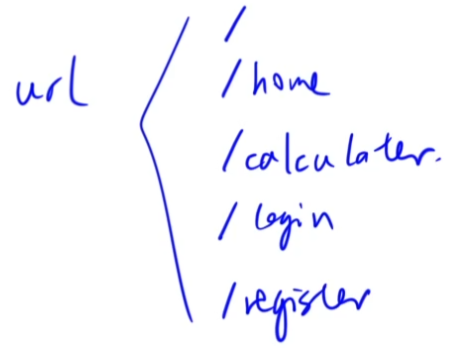 /
url
/home
/calculater.
/login
/register